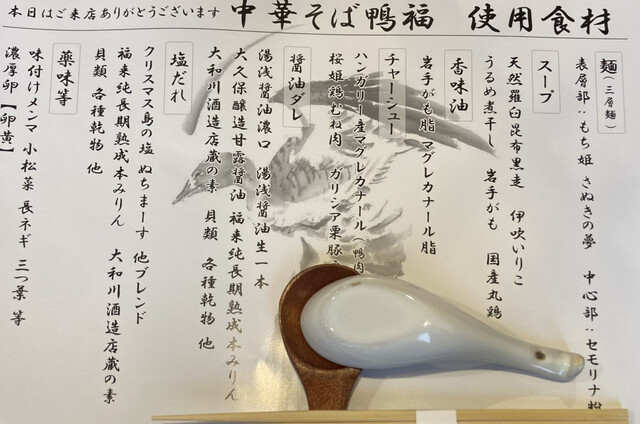 本日はご来店ありがとうございます
中華そば鴨福 使用食材
麺(三層麺)
表層部:もち姫 さぬきの夢 中心部:セモリナ粉
スープ
天然羅臼昆布黒走 伊吹いりこ
うるめ煮干し 岩手がも 国産丸鶏
香味油
岩手がも脂 マグレカナール脂
チャーシュー
ハンガリー産マグレカナール(鴨肉
桜姫鶏むね肉 ガリシア栗豚
醤油ダレ
湯浅醤油濃口 湯浅醤油生一本
大久保醸造甘露醤油 福来純長期熟成本みりん
大和川酒造店蔵の素 貝類 各種乾物 他
塩だれ
クリスマス島の塩 ぬちまーす 他ブレンド
福来純長期熟成本みりん 大和川酒造店蔵の素
貝類 各種乾物 他
薬味等
味付けメンマ 小松菜 長ネギ 三つ葉 等
濃厚卵【卵黄】